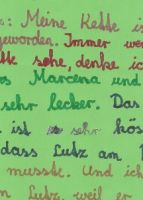 : Meine Kette is
geworden. Immer wen
tte sehe, denke ich
rs Marcena und
sehr lecker. Das
ist sehr kös
dass Lutz am
musste. Und ich
Lutz, weil er